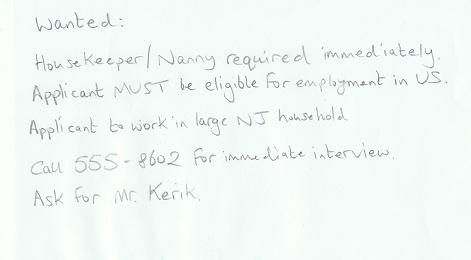 Wanted:
Housekeeper/Nanny required immediately.
Applicant MUST be eligible for employment in US.
Applicant to work in large NJ household
Call 555-8602 for immediate interview.
Ask for Mr. Kerik.